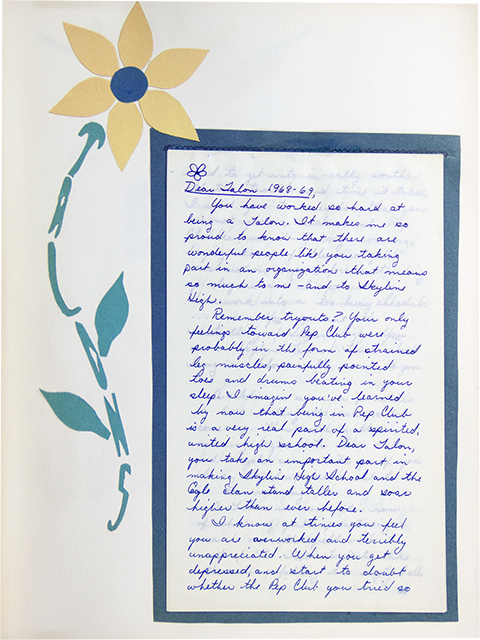 Dear Talon 1968-69,
You have worked so hard at
being a Talon. It makes me so
proud to know that there are
wonderful people like you taking
part in an organization that means
so much to me - and to Skyline
High.
Remember tryouts? Your only
feelings toward Pep Club were
probably in the form of strained
leg muscles, painfully pointed
toes and drums beating in your
sleep. I imagin you've learned
by now that being in Pep Club
is a very real part of a spirited,
united high school. Dear Talon,
you take an important part in
making Skyline High School and the
Eagle Clan stand taller and soar
higher than ever before.
I know at times you feel
you are overworked and terribly
unappreciated. When you get
depressed, and start to doubt
whether the Pep Club you tried so